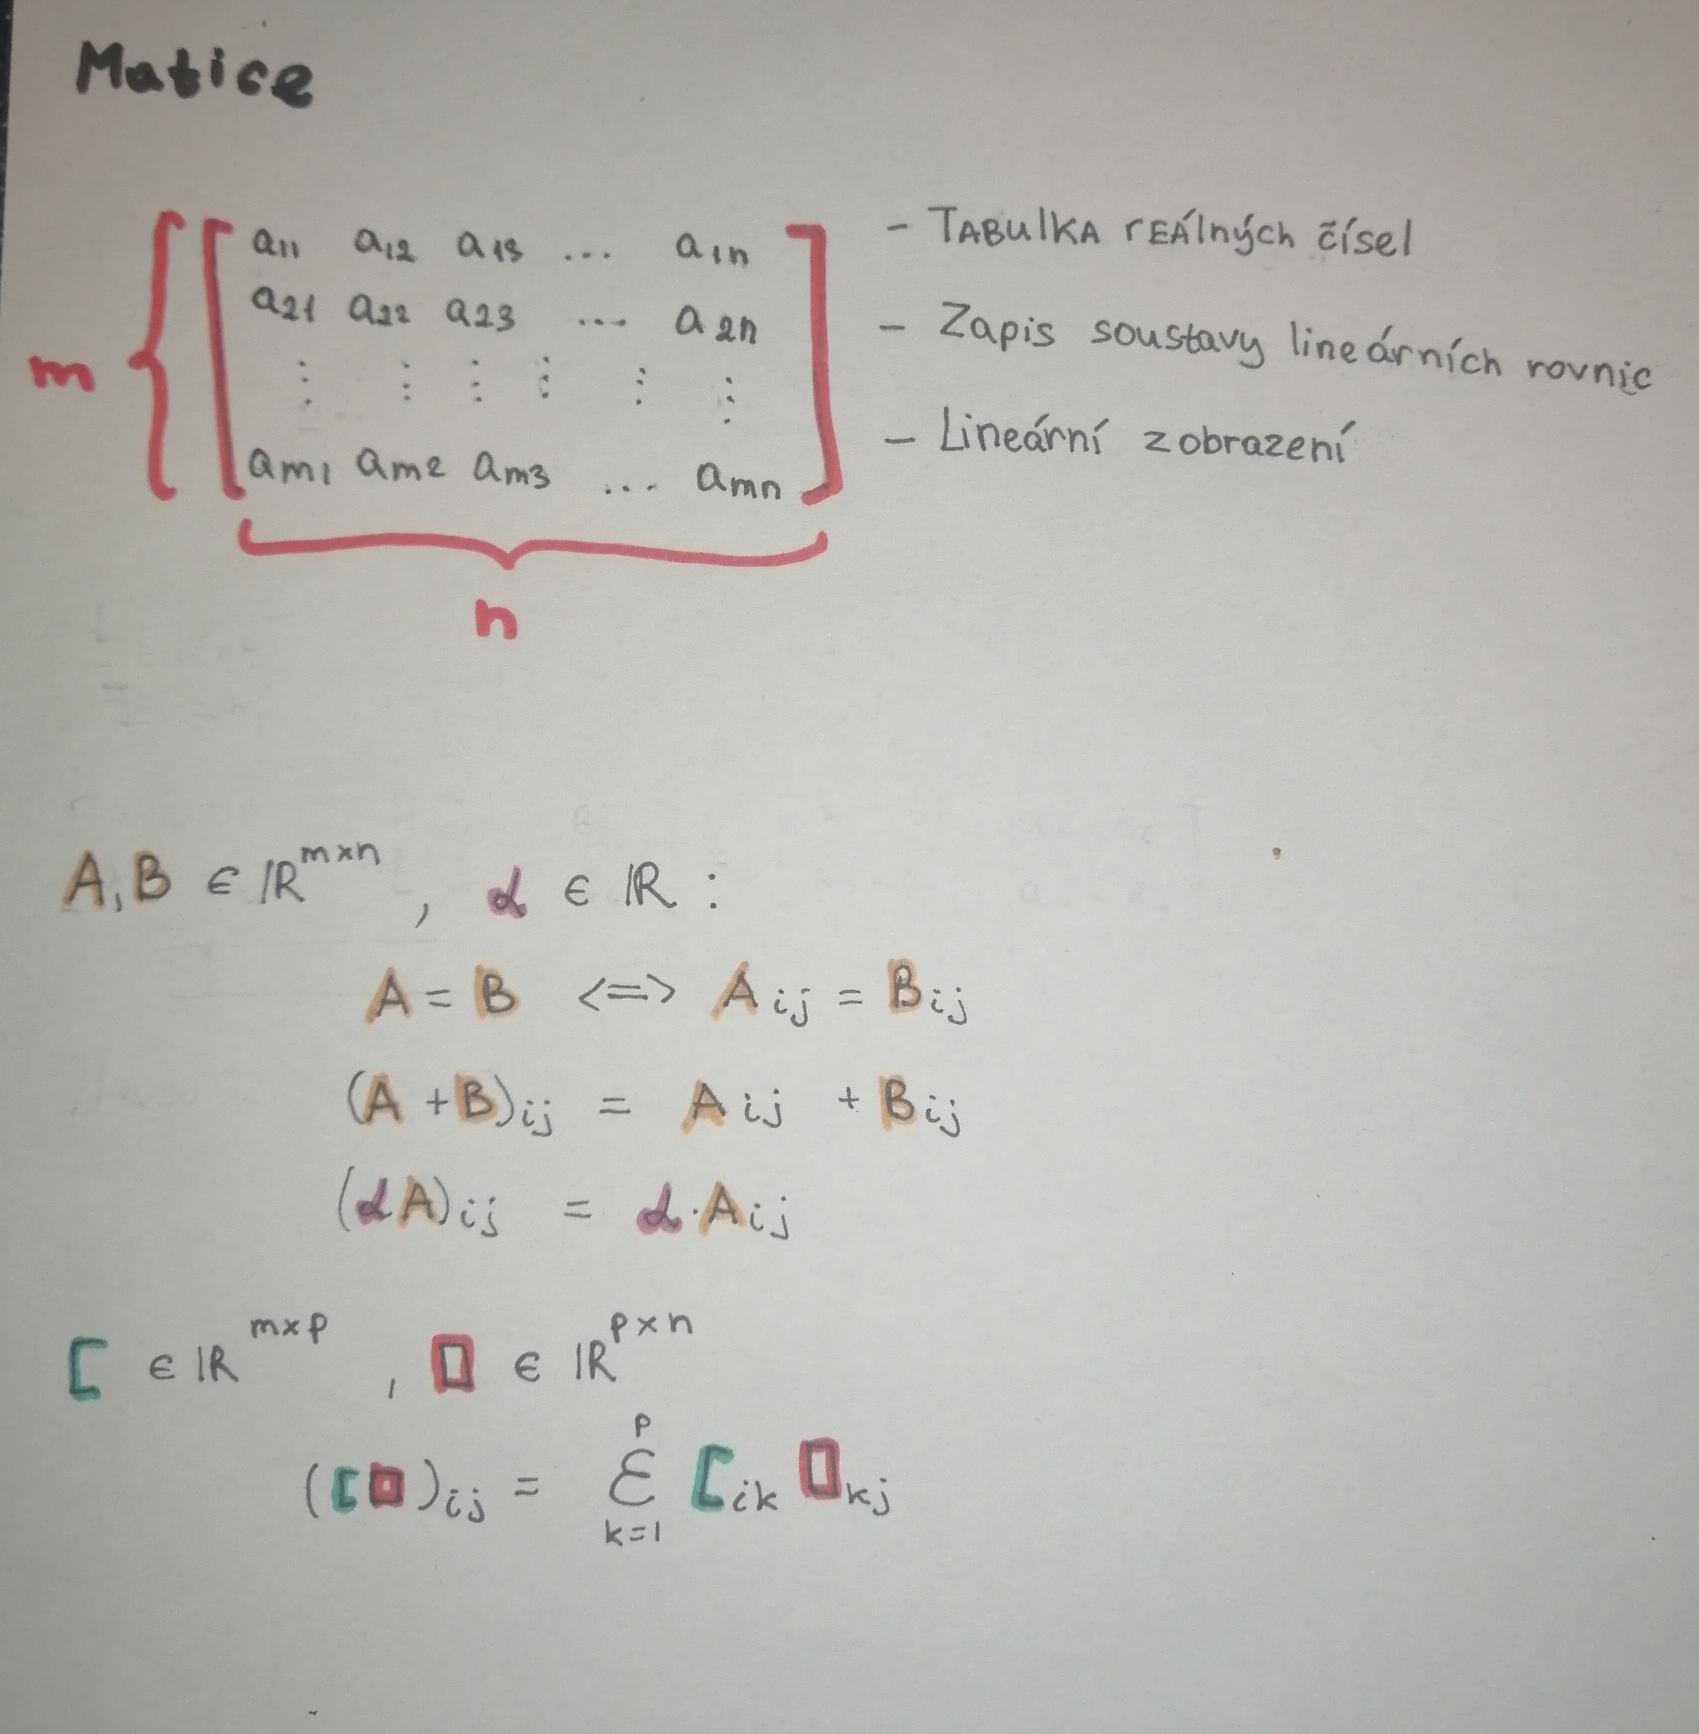 Matice
a11 a12 a13 ... a1n
a21 a22 a23 ... a2n
⋮ ⋮ ⋮ ⋮ ⋮ ⋮
am1 am2 am3 ... amn
m
n
- TABulKA rEÁlných čísel
- Zapis soustavy lineárních rovnic
- Lineární zobrazení
A,B ∈ ℝ^{m×n}, α ∈ ℝ :
A = B <=> A_{ij} = B_{ij}
(A + B)_{ij} = A_{ij} + B_{ij}
(αA)_{ij} = α·A_{ij}
[ ∈ ℝ^{m×p}, ▯ ∈ ℝ^{p×n}
([▯)_{ij} = Σ_{k=1}^{p} [_{ik} ▯_{kj}